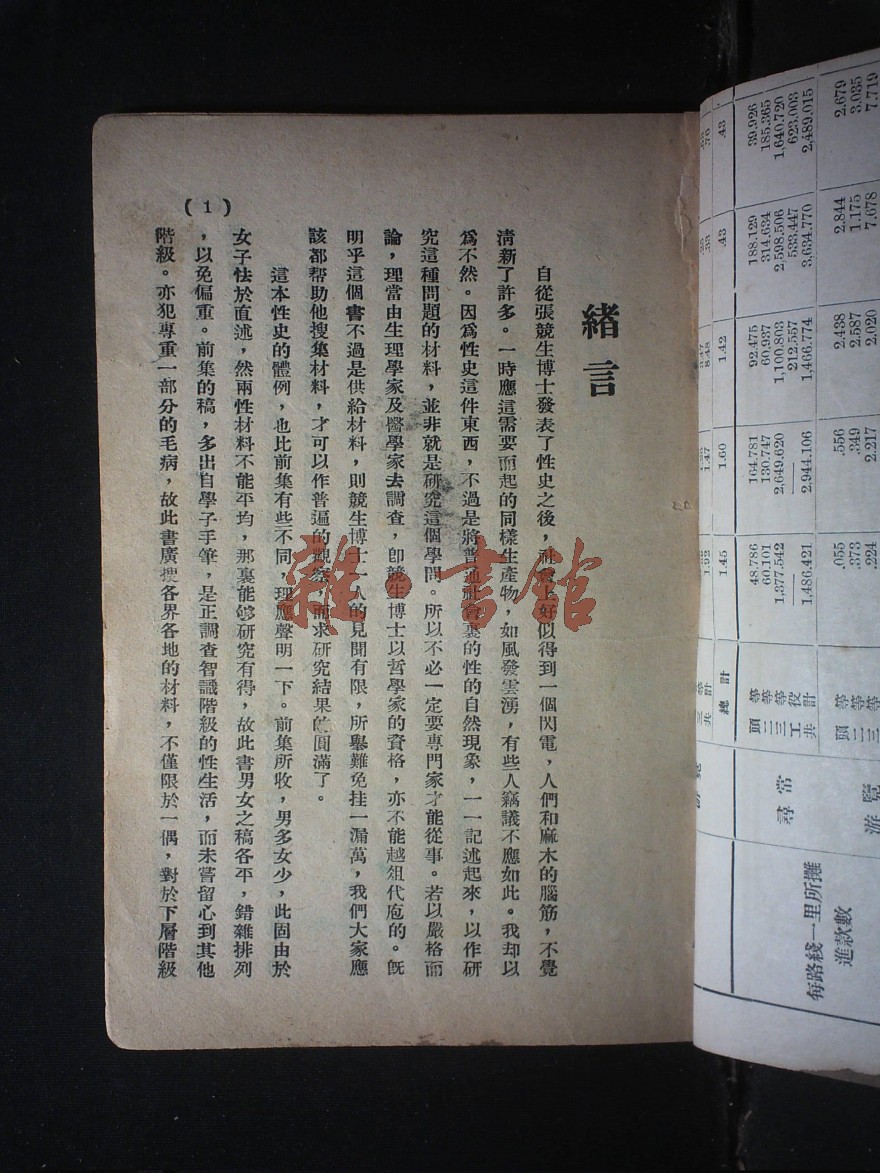 緒言
自從張競生博士發表了性史之後，社會上好似得到一個閃電，人們和麻木的腦筋，不覺
清新了許多。一時應這需要而起的同樣生產物，如風發雲湧，有些人竊議不應如此。我却以
爲不然。因爲性史這件東西，不過是將普通社會裏的性的自然現象，一一記述起來，以作研
究這種問題的材料，並非就是研究這個學問。所以不必一定要專門家才能從事。若以嚴格而
論，理當由生理學家及醫學家去調查，卽競生博士以哲學家的資格，亦不能越俎代庖的。旣
明乎這個書不過是供給材料，則競生博士一人的見聞有限，所舉難免挂一漏萬，我們大家應
該都帮助他搜集材料，才可以作普遍的觀察，而求研究結果的圓滿了。
這本性史的體例，也比前集有些不同，理應聲明一下。前集所收，男多女少，此固由於
女子怯於直述，然兩性材料不能平均，那裏能够研究有得，故此書男女之稿各平，錯雜排列
，以免偏重。前集的稿，多出自學子手筆，是正調查智識階級的性生活，而未嘗留心到其他
階級。亦犯專重一部分的毛病，故此書廣搜各界各地的材料，不僅限於一偶，對於下層階級
(1)
雜·書館
每路綫一里所攤
進款數
尋常
游覽
總計 1.45 1.60 1.42 .43 .43
頭等 48.786 164.781 92.475 188.129 39.926
二等 60.101 130.747 60.937 314.634 185.365
三等 1,377.542 2,649.620 1,100.803 2,598.506 1,640.720
工役 —— —— 212.557 533.447 623.003
共計 1,486.421 2,944.106 1,466.774 3,634.770 2,489.015
頭等 .055 .556 2.438 2.844 2.679
二等 .373 .349 2.587 1.175 3.035
三等 .224 2.217 2.020 7.078 7.719